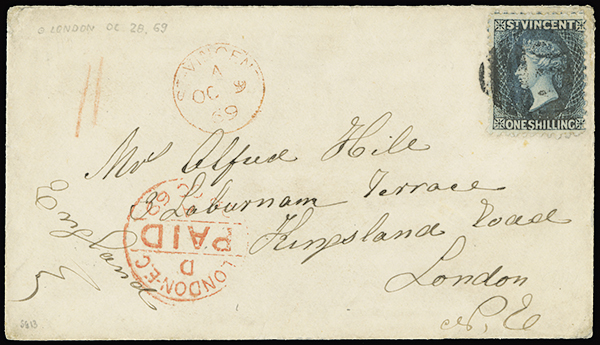 a LONDON OC 28, 69
ST VINCENT
ONE SHILLING
ST. VINCENT
A
OC 9
69
Mrs Alfred Hile
8 Laburnam Terrace
Kingsland Road
London
N.E
England
LONDON-E.C
PAID
D
69